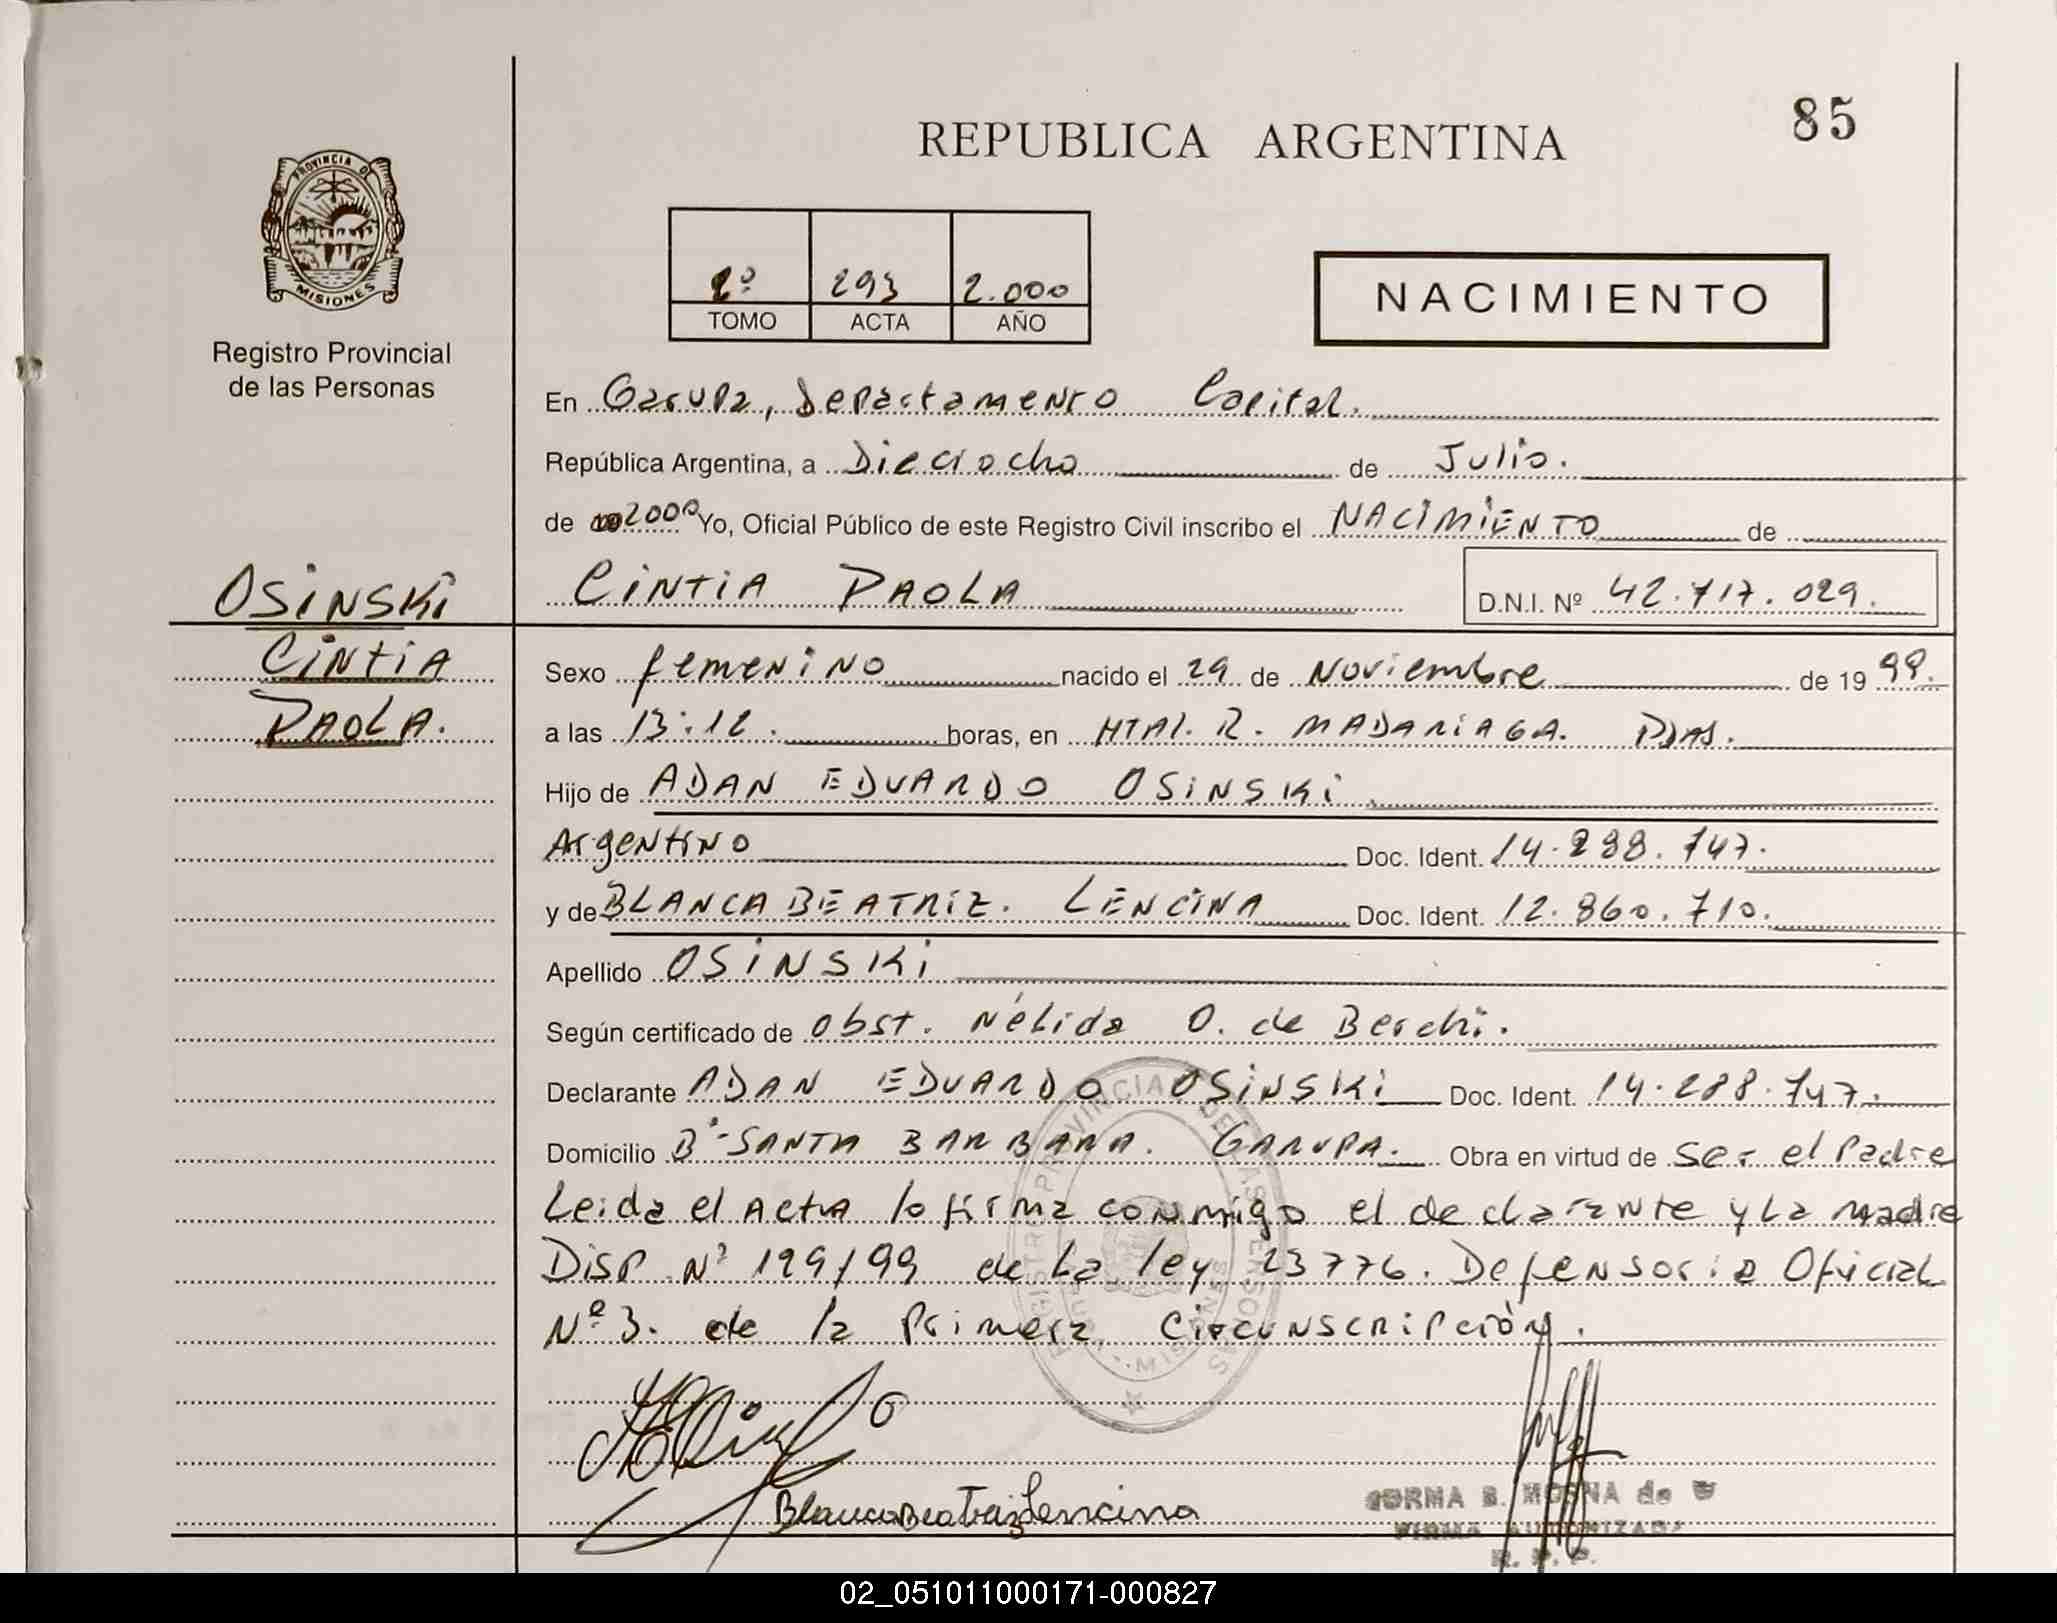 85
REPUBLICA ARGENTINA
PROVINCIA DE
MISIONES
Registro Provincial
de las Personas
2º 293 2.000
TOMO ACTA AÑO
NACIMIENTO
En Garupa, Departamento Capital.
República Argentina, a Dieciocho de Julio.
de 2000 Yo, Oficial Público de este Registro Civil inscribo el NACIMIENTO de
OSINSKI CINTIA PAOLA D.N.I. Nº 42.717.029.
CINTIA Sexo femenino nacido el 29 de Noviembre de 19 99.
PAOLA. a las 13:12. horas, en HTAL. R. MADARIAGA. PDAS.
Hijo de ADAN EDUARDO OSINSKI
Argentino Doc. Ident. 14.288.747.
y de BLANCA BEATRIZ. LENCINA Doc. Ident. 12.860.710.
Apellido OSINSKI
Según certificado de Obst. Nélida O. de Berchi.
Declarante ADAN EDUARDO OSINSKI Doc. Ident. 14.288.747.
Domicilio Bº SANTA BARBARA. GARUPA. Obra en virtud de Ser el Padre
Leida el Acta lo firma conmigo el declarante y La madre
Disp Nº 199/99 de La ley 23776. Defensoria Oficial
Nº 3. de la Primera Circunscripción.
REGISTRO PROVINCIAL DE LAS PERSONAS
MISIONES
Blanca Beatriz Lencina
B. MOSNA de
FIRMA AUTORIZADA
R. P. P.
02_051011000171-000827